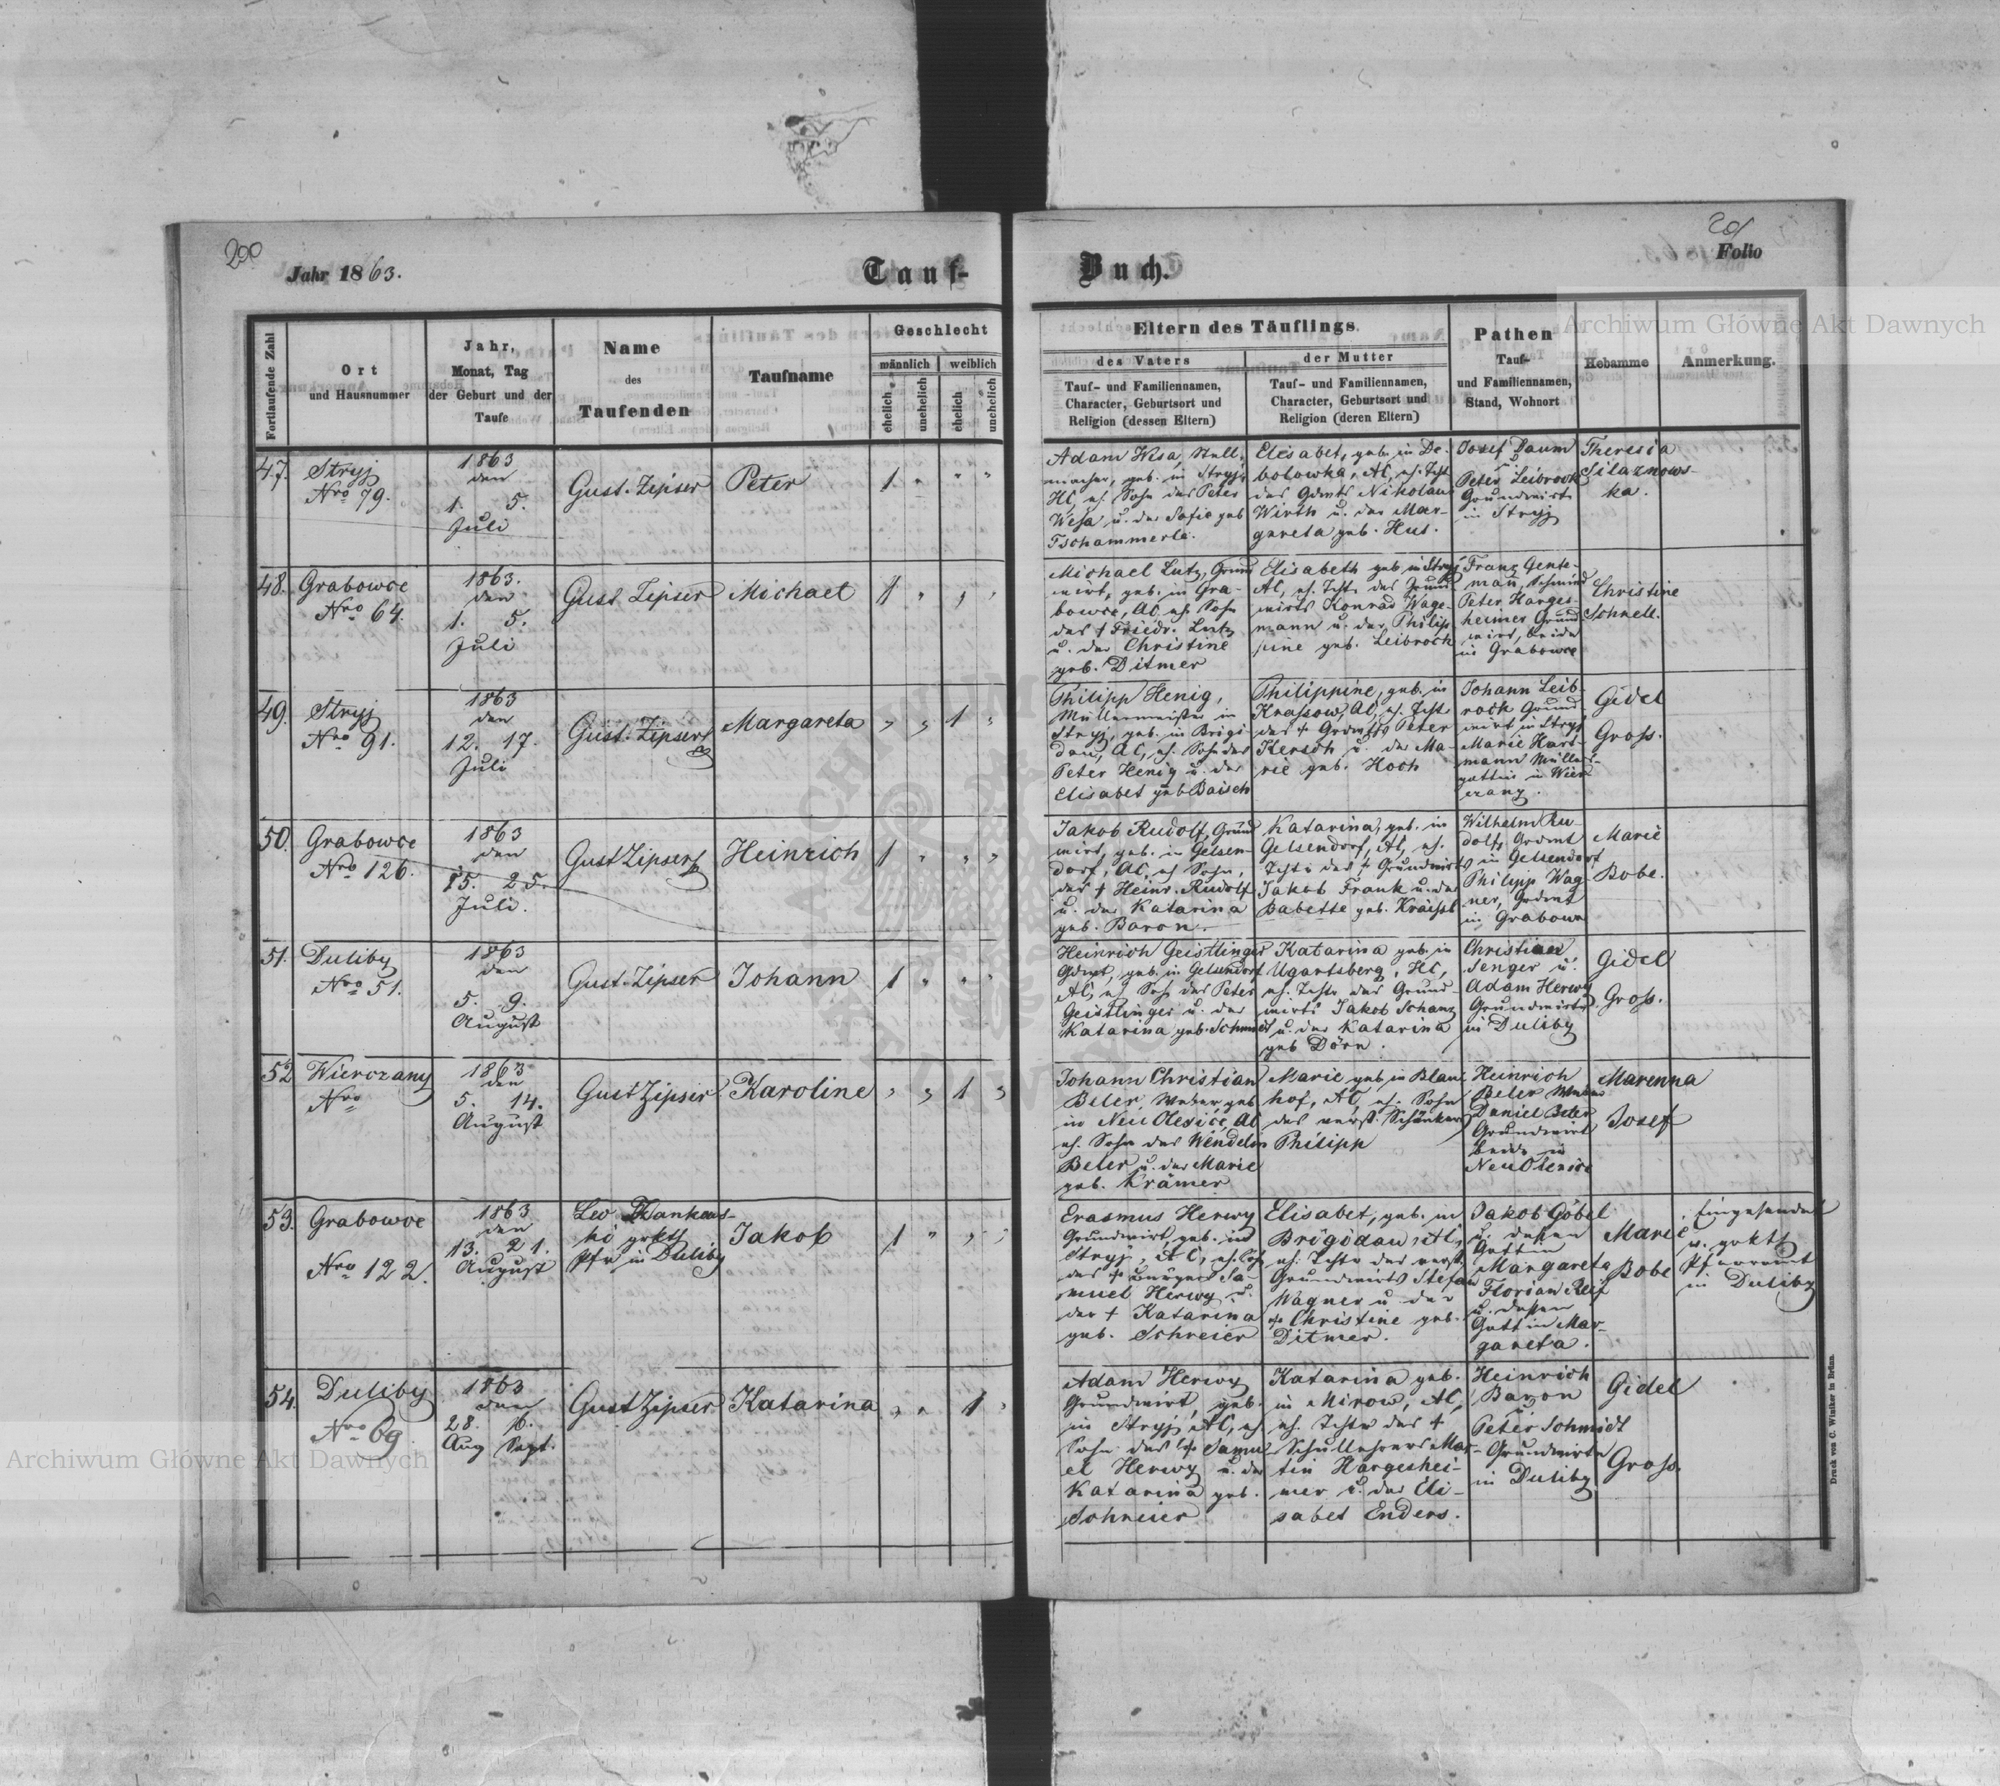 200
Jahr 1863.
Tauf-
Buch.
201
Folio
Fortlaufende Zahl
Ort
und Hausnummer
Jahr,
Monat, Tag
der Geburt und der
Taufe
Name
des
Taufenden
Taufname
Geschlecht
männlich
weiblich
ehelich
unehelich
ehelich
unehelich
Eltern des Täuflings
des Vaters
Tauf- und Familiennamen,
Character, Geburtsort und
Religion (dessen Eltern)
der Mutter
Tauf- und Familiennamen,
Character, Geburtsort und
Religion (deren Eltern)
Pathen
Tauf-
und Familiennamen,
Stand, Wohnort
Hebamme
Anmerkung.
47.
Stryj
Nro 79.
1863
den
1. 5.
Juli
Gust. Zipser
Peter
1
Adam Wesa, Stell-
macher, geb. in Stryj
HC, eh. Sohn des Peter
Wesa u. der Sofie geb
Tschammerle.
Elisabet, geb. in De-
bolowka, AC, eh. Tcht
des Gdwts Nikolaus
Wirth u. der Mar-
gareta geb. Hut.
Josef Daum
u
Peter Leibrock
Grundwirt
in Stryj
Theresia
Silaznows-
ka.
48.
Grabowce
Nro 64.
1863.
den
1. 5.
Juli
Gust Zipser
Michael
1
Michael Lutz, Grund
wirt, geb. in Gra-
bowce, AC eh. Sohn
des † Friedr. Lutz
u. der Christine
geb. Ditmer
Elisabeth geb in Stryj
AC, eh. Tcht des Grund
wirts Konrad Wage-
mann u. der Philip
pine geb. Leibroch
Franz Gente-
man, Schmied
Peter Harges-
heimer Grund
wirt, beide
in Grabowce
Christine
Schnell.
49.
Stryj
Nro 91.
1863
den
12. 17.
Juli
Gust. Zipser
Margareta
1
Philipp Henig,
Müllermeister in
Stryj, geb. in Brigi-
dau, AC, eh. Sohn des
Peter Henig u. der
Elisabet geb Baisch
Philippine, geb. in
Krassow, AC, eh. Tcht
des † Grdwts Peter
Kersch u. der Ma-
rie geb. Hoch
Johann Leib-
rock Grund
wirt in Stryj
Marie Hart-
mann Müllers-
gattin in Wier
czany.
Gidel
Gross.
50.
Grabowce
Nro 126.
1863
den
15. 25.
Juli.
Gust Zipser
Heinrich
1
Jakob Rudolf, Grund
wirt, geb. in Gelsen-
dorf, AC, eh Sohn,
des † Heinr. Rudolf
u. der Katarina
geb. Baron.
Katarina, geb. in
Gelsendorf, AC, eh.
Tcht des † Grundwirts
Jakob Frank u. der
Babette geb. Kraissl
Wilhelm Ru-
dolf, Grdwt
in Gelsendorf
Philipp Wag-
ner, Grdwt
in Grabowce
Marie
Bobe.
51.
Duliby
Nro 51.
1863
den
5. 9.
August
Gust. Zipser
Johann
1
Heinrich Geistlinger
Gdwt, geb. in Gelsendorf
AC, eh Sohn des Peter
Geistlinger u. der
Katarina geb. Schmidt
Katarina geb in
Ugartsberg, HC,
eh. Tcht des Grund
wirts Jakob Schanz
u. der Katarina
geb Dörn.
Christian
Senger u.
Adam Herwy
Grundwirte
in Duliby
Gidel
Gross.
52
Wierczany
Nro
1863
den
5. 14.
August
Gust Zipser
Karoline
1
Johann Christian
Beler, Weber geb
in Neu Olesice AC
eh. Sohn des Wendelin
Beler u. der Marie
geb. Krämer
Marie geb in Blau
hof, AC, eh.
des verst. Schänkers
Philipp
Heinrich
Beler Weber
Daniel Beler
Grundwirt
beide in
Neu Olesice
Marenna
Josef
53.
Grabowce
Nro 122.
1863
den
13. 21.
August
Pfr in Duliby
Jakob
1
Erasmus Herwy
Grundwirt, geb. in
Stryj, AC, eh. Sohn
des † Bürgers Sa-
muel Herwy u.
der † Katarina
geb. Schreier
Elisabet, geb. in
Brigidau, AC,
eh. Tcht des verst.
Grundwirts Stefan
Wagner u. der
† Christine geb.
Ditmer.
Jakob Göbel
u. dessen
Gattin
Margareta
Florian Reif
u. dessen
Gattin Mar-
gareta.
Marie
Bobe
Eingesendet
v. gr kth
Pfarramt
in Duliby
54.
Duliby
Nro 69
1863
den
28. 6.
Aug Sept.
Gust Zipser
Katarina
1
Adam Herwy
Grundwirt, geb.
in Stryj, AC, eh
Sohn des † Samu-
el Herwy u. der
Katarina geb.
Schreier
Katarina geb.
in Mirow, AC,
eh. Tcht des †
Schullehrers Mar-
tin Hargeshei-
mer u. der Eli-
sabet Enders.
Heinrich
Baron
u.
Peter Schmidt
Grundwirte
in Duliby
Gidel
Gross.
Druck von C. Winiker in Brünn.
Archiwum Główne Akt Dawnych
Archiwum Główne Akt Dawnych